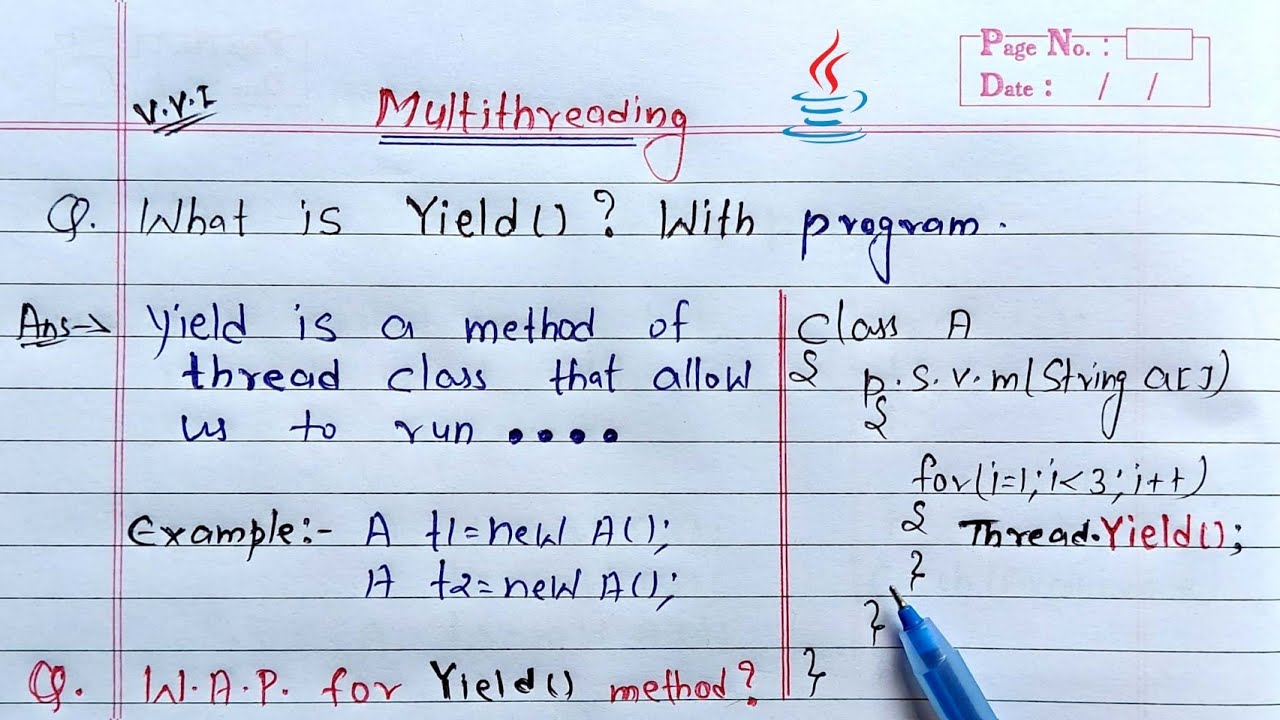 Page No. :
Date : / /
V.V.I
Multithreading
Q. What is Yield()? With program.
Ans→ Yield is a method of
thread class that allow
us to run ....
Example:- A t1=new A();
A t2=new A();
Class A
{ p.s.v.m(String a[])
{
for(i=1;i<3;i++)
{ Thread.Yield();
}
}
}
Q. W.A.P. for Yield() method?